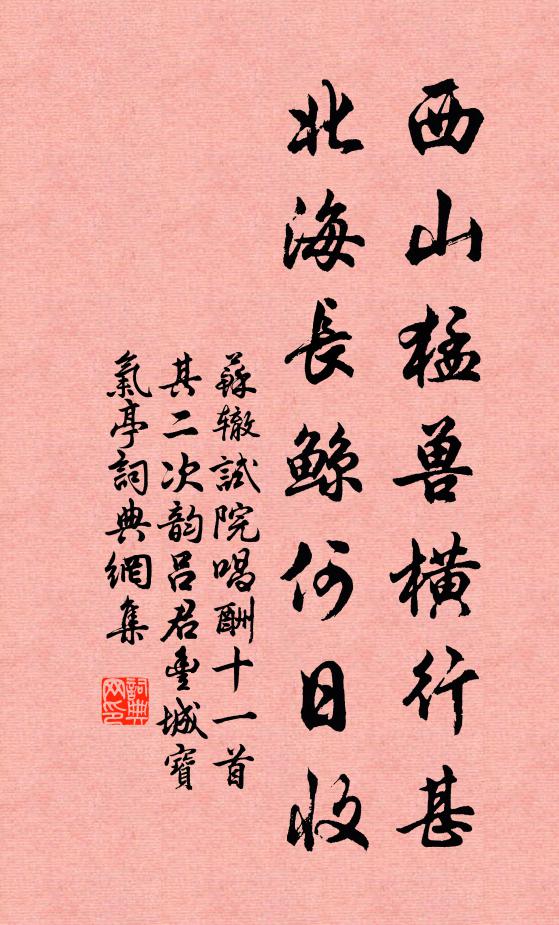 西山猛兽橫行甚
北海長鲸何日收
蘇辙試院唱酬十一首
其二次韵吕君豊城寶
氣亭詞典網集
詞典网印